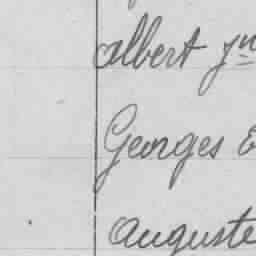 albert Jn
Georges E
auguste